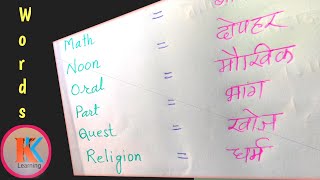 Words
Math =
Noon = दोपहर
Oral = मौखिक
Part = भाग
Quest = खोज
Religion = धर्म
K
Learning